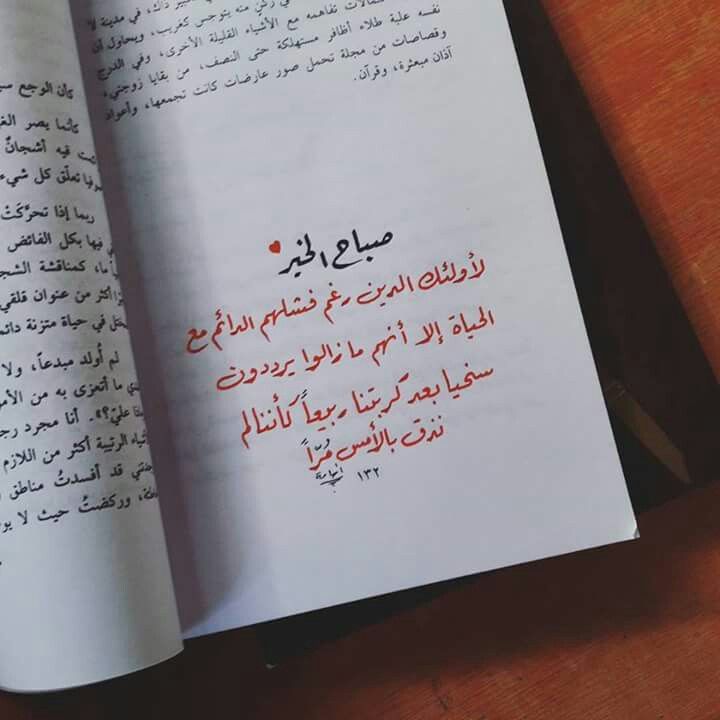 في رشّ منه يتوجس كغريب، في مدينة لا
تفاهمه مع الأشياء القليلة الأخرى، ويحاول أن
نفسه علبة طلاء أظافر مستهلكة حتى النصف، وفي الدرج
وقصاصات من مجلة تحمل صور عارضات كانت تجمعها، وأعواد
آذان مبعثرة، وقرآن.
صباح الخير
لأولئك الذين رغم فشلهم الدائم مع
الحياة إلا أنهم ما زالوا يرددون
سنحيا بعد كربتنا ربيعاً كأننا لم
نذق بالأمس مُرّاً
١٣٢
كأن الوجع
كأنما يصر
فيه أشجانٌ
تعلّق كل شيء
ربما إذا تحرّكَتْ
فيها بكل الفائض
كمناقشة
أكثر من عنوان قلقي
في حياة متزنة
لم أُولد مبدعاً، ولا
ما أتعزى به من
عليّ؟». أنا مجرد
الرتيبة أكثر من اللازم
قد أفسدتُ مناطق
وركضتُ حيث لا